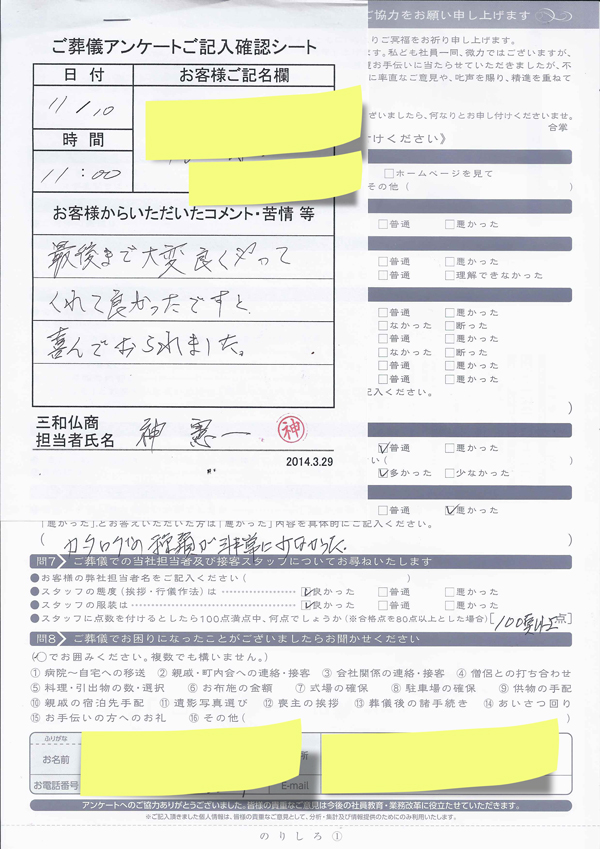 ご協力をお願い申し上げます
りご冥福をお祈り申し上げます。
ます。私ども社員一同、微力ではございますが、
お手伝いに当たらせていただきましたが、不
に率直なご意見や、叱声を賜り、精進を重ねて
ざいましたら、何なりとお申し付けくださいませ。
合掌
付けください》
□ホームページを見て
その他( )
□普通 □悪かった
□普通 □悪かった
□普通 □理解できなかった
□普通 □悪かった
□なかった □断った
□普通 □悪かった
□なかった □断った
□普通 □悪かった
□普通 □悪かった
記入ください。
)
☑普通 □悪かった
い(
☑多かった □少なかった
□普通 ☑悪かった
ご葬儀アンケートご記入確認シート
日 付 お客様ご記名欄
11/10
時 間
11:00
お客様からいただいたコメント・苦情 等
最後まで大変良くやって
くれて良かったですと
喜んでおられました。
三和仏商
担当者氏名 神 憲一 神
2014.3.29
「悪かった」とお答えいただいた方は「悪かった」内容を具体的にご記入ください。
(カタログの種類が非常に少なかった
問7 ご葬儀での当社担当者及び接客スタッフについてお尋ねいたします
●お客様の弊社担当者名をご記入ください( )
●スタッフの態度(挨拶・行儀作法)は ☑良かった □普通 □悪かった
●スタッフの服装は ☑良かった □普通 □悪かった
●スタッフに点数を付けるとしたら100点満点中、何点でしょうか(※合格点を80点以上とした場合)[100点以上点]
問8 ご葬儀でお困りになったことがございましたらお聞かせください
(○でお囲みください。複数でも構いません。)
①病院〜自宅への移送 ②親戚・町内会への連絡・接客 ③会社関係の連絡・接客 ④僧侶との打ち合わせ
⑤料理・引出物の数・選択 ⑥お布施の金額 ⑦式場の確保 ⑧駐車場の確保 ⑨供物の手配
⑩親戚の宿泊先手配 ⑪遺影写真選び ⑫喪主の挨拶 ⑬葬儀後の諸手続き ⑭あいさつ回り
⑮お手伝いの方へのお礼 ⑯その他( )
ふりがな
お名前 所
お電話番号 E-mail
アンケートへのご協力ありがとうございました。皆様の貴重なご意見は今後の社員教育・業務改革に役立たせていただきます。
※ご記入頂きました個人情報は、皆様の貴重なご意見として、分析・集計及び情報提供のためにのみ利用いたします。
のりしろ①